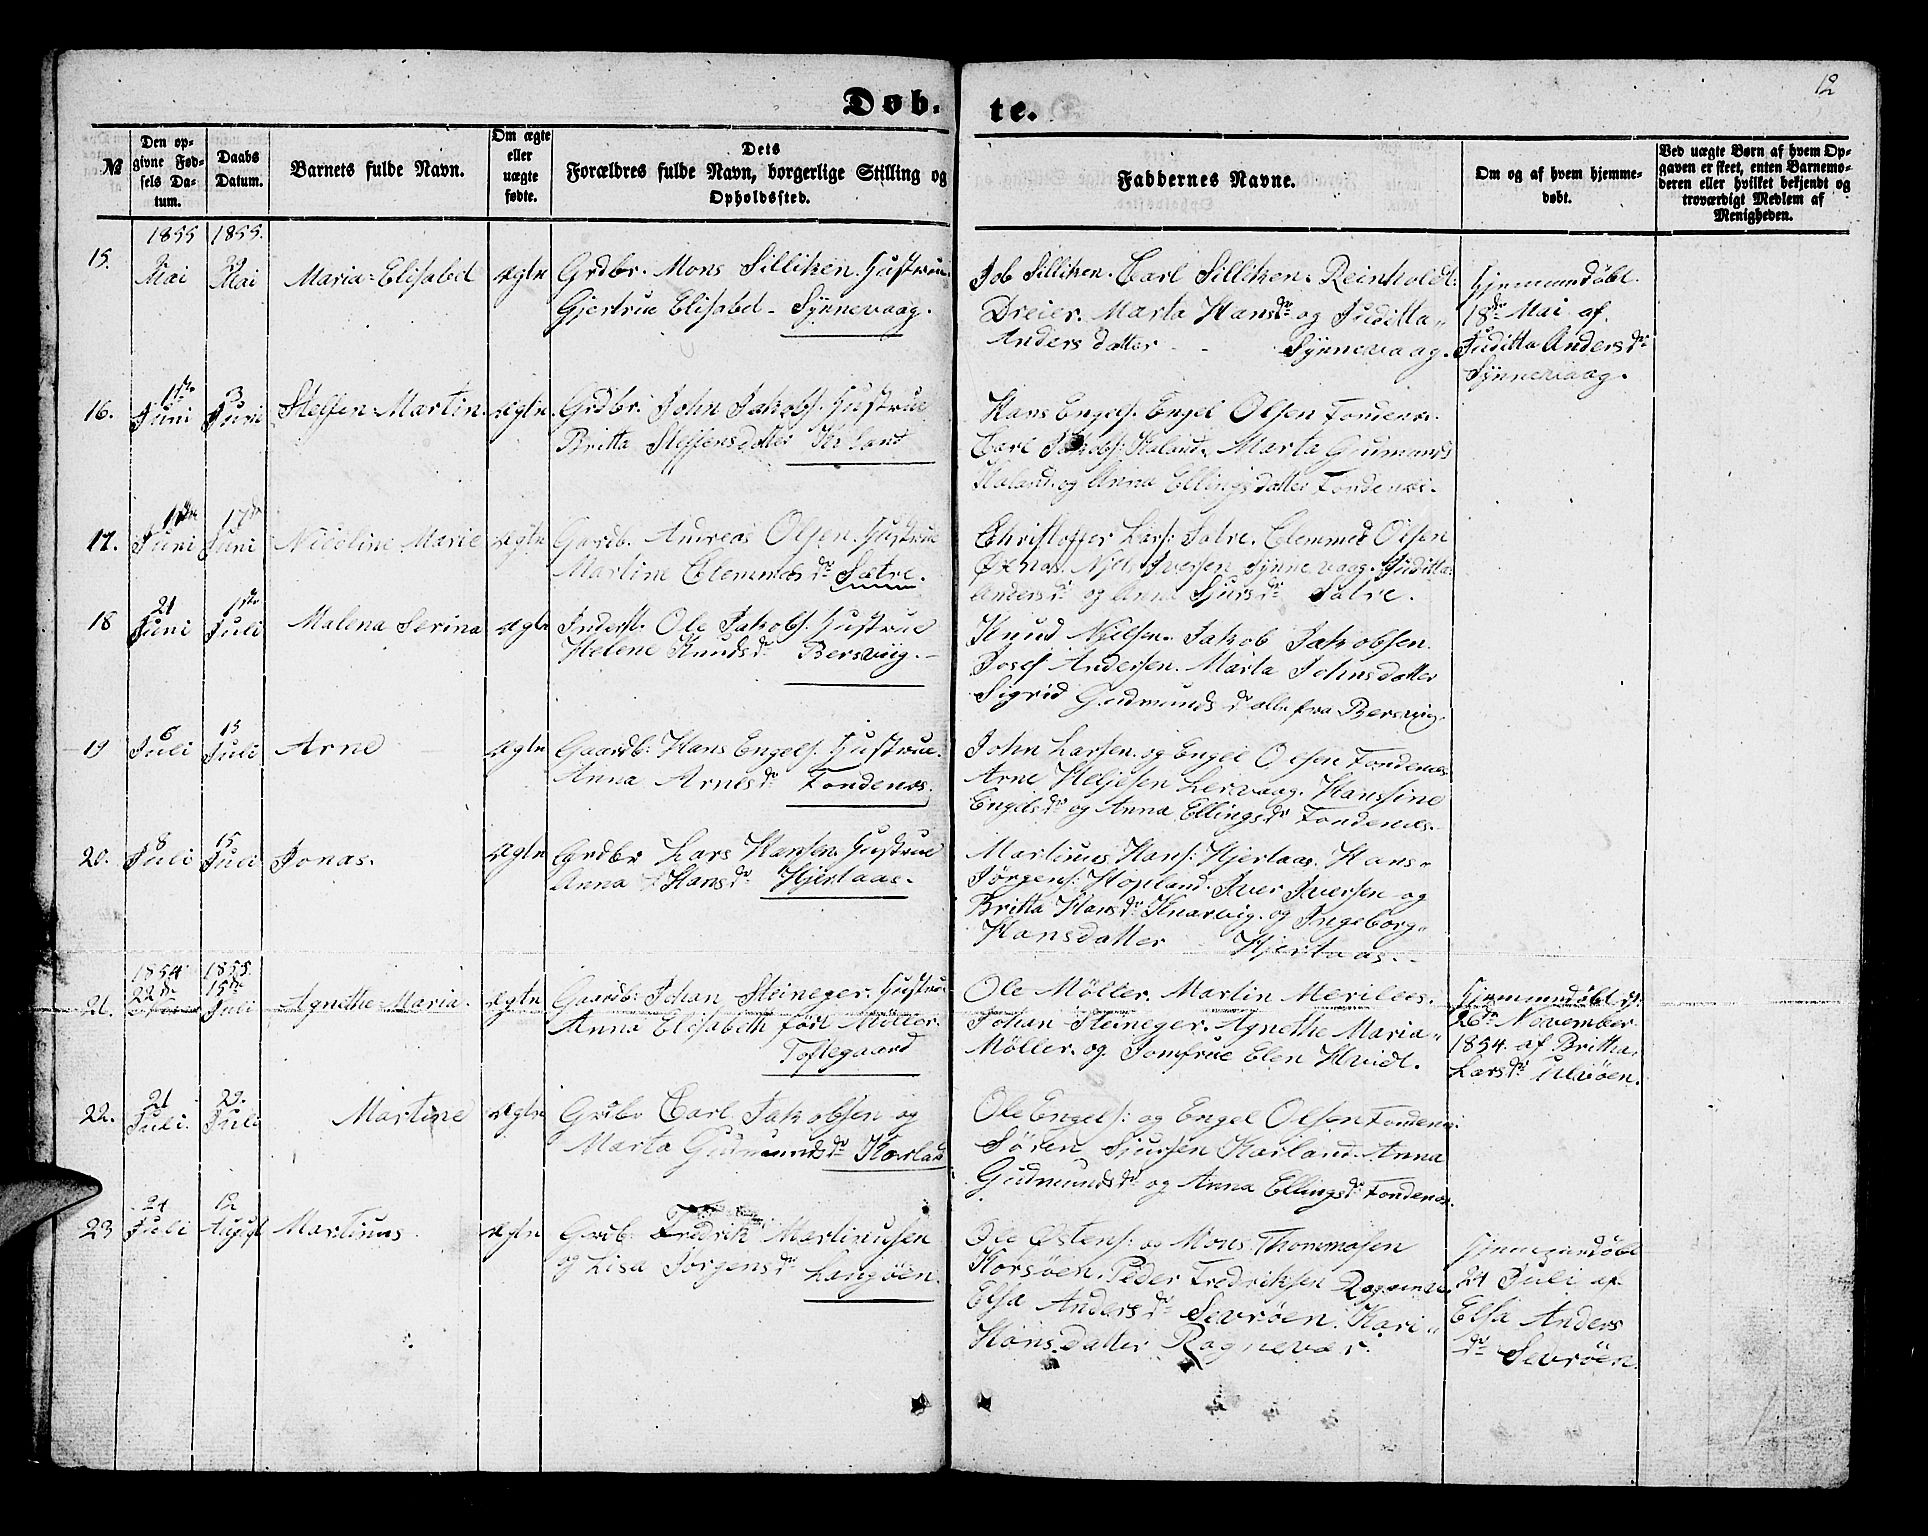 12
Døb-te.
№
Den opgivne Fødsels Datum.
Daabs Datum.
Barnets fulde Navn.
Om ægte eller uægte fødte.
Dets Forældres fulde Navn, borgerlige Stilling og Opholdssted.
Faddernes Navne.
Om og af hvem hjemmedøbt.
Ved uægte Børn af hvem Opgaven er skeet, enten Barnemoderen eller hvilket bekjendt og troværdigt Medlem af Menigheden.
1855 1855.
15. Mai Mai Maria-Elisabel ægte Grdbr. Mons Silliken. Hustrue Job Silliken. Carl Silliken. Reinholdt Hjemmedøbt
Gjertrue Elisabel - Synnevaag. Dreier. Marta Hansdr og Juditta 18de Mai af
Anders datter - Synnevaag. Juditta Andersdr
Synnevaag.
16. 1ste Juni 3 Juni Steffen Martin. ægte Grdbr. John Jakobs. Hustrue Hans Engels. Engel Olsen Fondenæs.
Britta Steffensdatter Carl Jakobs: Marta
og Anna Ellingsdatter Fondenæs.
17. Juni 17de Juni Nicoline Marie ægte Gaardb. Andreas Olsen. Hustrue Christoffer Lars: Sætre. Clemmed Olsen
Martine Clemmedsdr Sætre. Iversen Synnevaag. Juditta
Andersdr og Anna Sjursdr Sætre.
18 21 Juni 1ste Juli Malena Serina ægte Inderst. Ole Jakobs. Hustrue Knud Nielsen. Jakob Jakobsen.
Helene Knudsdr Bersvig. Josef Andersen. Marta Johnsdatter
Sigrid Gudmundsdr alle fra Bersvig.
19 6 Juli 15 Juli Arne ægte Gaardb: Hans Engels. Hustrue John Larsen. og Engel Olsen Fondenæs
Anna Arnesdr Fondenæs. Arne Heljesen Leirvaag. Hansine
Engelsdr og Anna Ellingsdr Fondenæs.
20. 8 Juli 15 Juli Jonas. ægte Grdbr Lars Hansen. Hustrue Martinus Hans: Hjertaas. Hans
Anna Hansdr Hjertaas. Jørgens: Hopland. Iver Iversen og
Britta Hansdr Knarvig. og Ingeborg
Hansdatter Hjertaas.
1854 1855.
21. 22de 15de Juli Agnethe Maria. ægte Gaardb: Johan Steineger. Hustrue Ole Møller. Martin Merilees. Hjemmedøbt
Anna Elisabeth født Møller. Johan Steineger. Agnethe Maria 26de November
Toftegaard Møller. og Jomfrue Elen Hvidt. 1854 af Britha
Larsdr Ulvøen.
22. 21 Juli. 29. Juli Martine ægte Grdbr Carl Jakobsen og Ole Engels: og Engel Olsen Fondenæs.
Marta Gudmundsdr Søren Sjursen Anna
Gudmundsdr og Anna Ellingsdr Fondenæs.
23 24 Juli 12 August Martinus ægte Grdb: Fredrik Martinusen Ole Østens: og Mons Thommasen Hjemmedøbt
og Lisa Jørgensdr Langøen. Korsøen. Peder Fredriksen Rognevær. 24 Juli af
Elsa Andersdr Sevrøen. Kari Elsa Anders
Hansdatter Rognevær. dr Sevrøen.